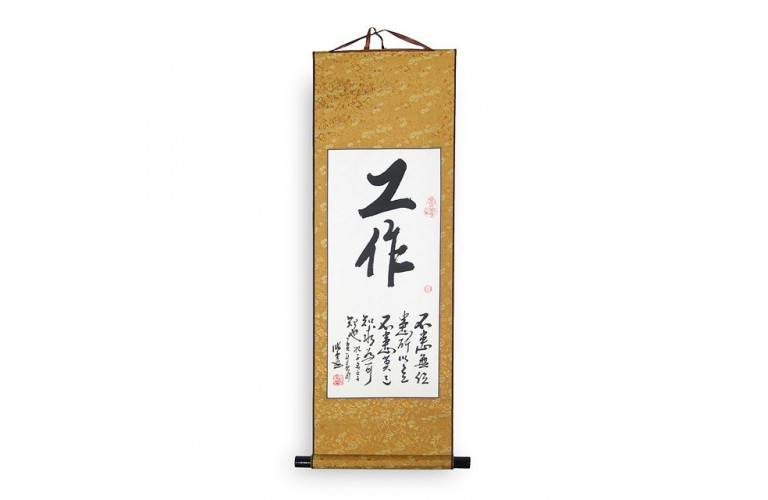 工作
不患無位
患所以立
不患莫己
知求為可
知也